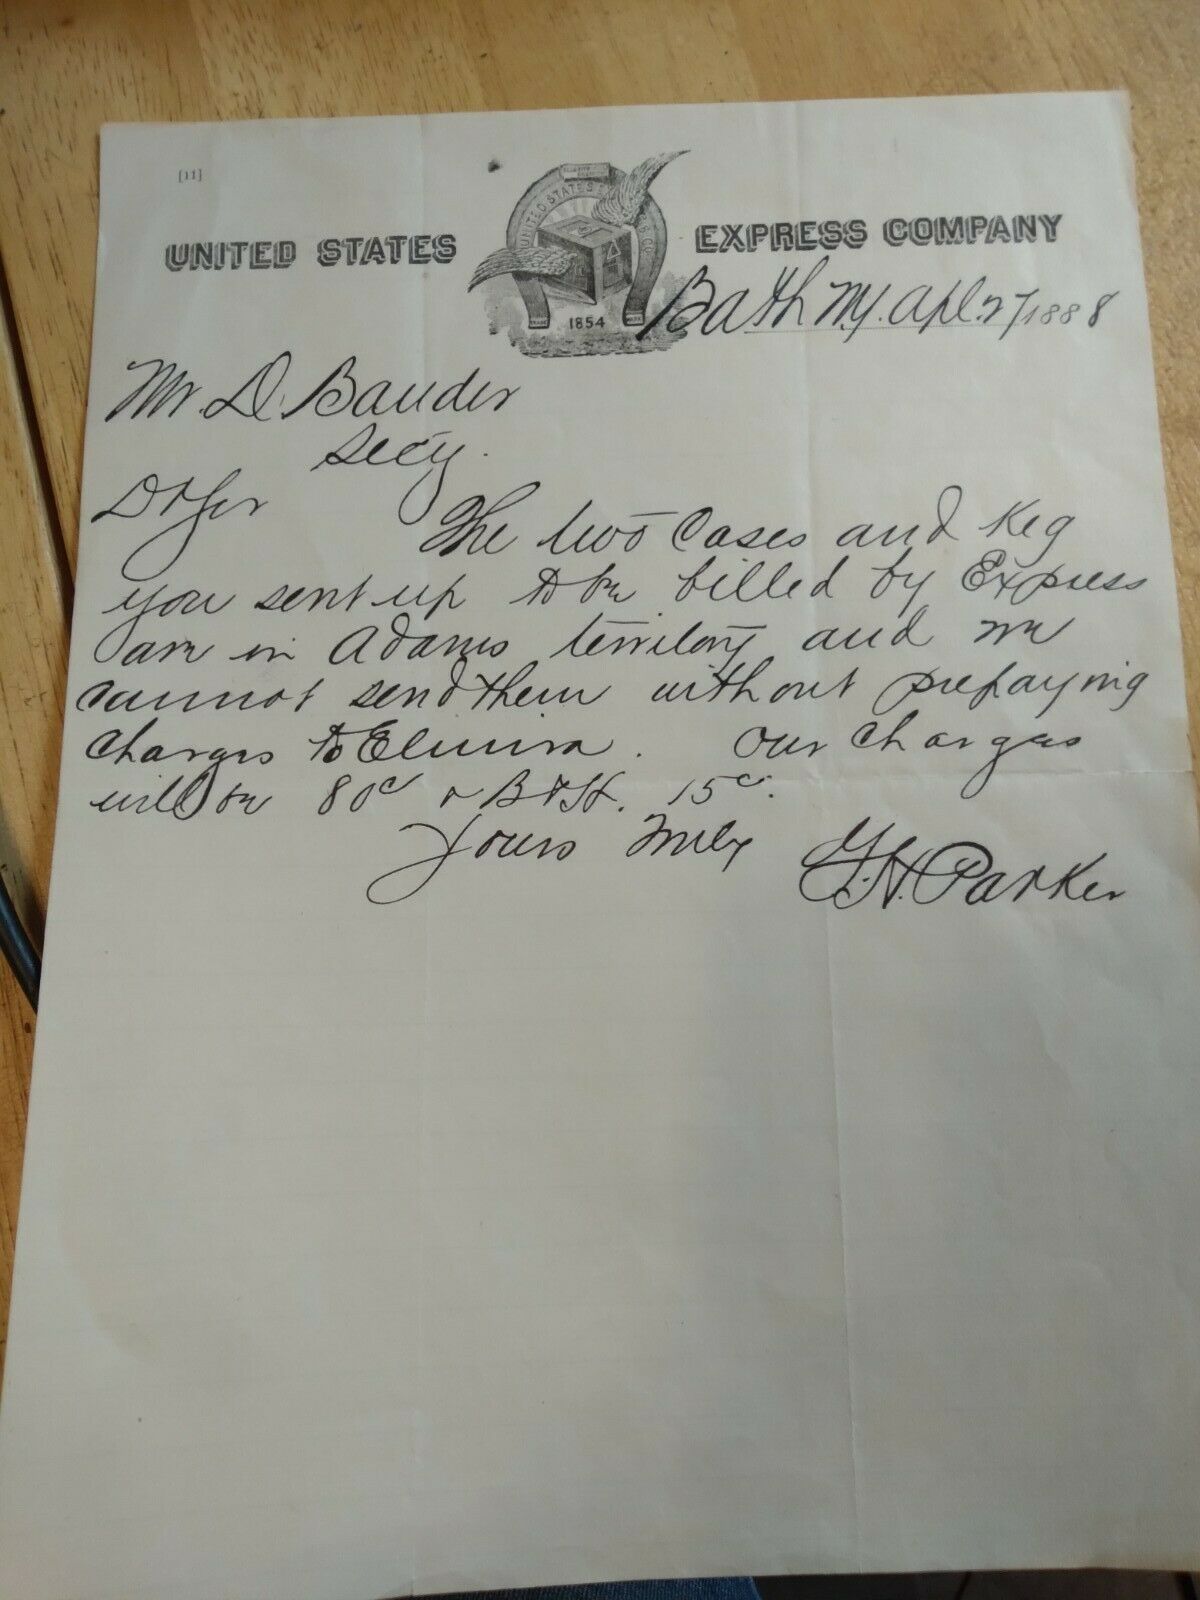 [11]
UNITED STATES EXPRESS COMPANY
UNITED STATES
1854
TRADE MARK
Bath NY. Apl. 27 1888
Mr. D. Bauder
Secy.
D Sir
The two Cases and Keg
you sent up to be billed by Express
are in Adams territory and we
cannot send them without prepaying
Charges to Elmira. Our Charges
will be 80c & B & H. 15c.
Yours Truly
G. H. Parker